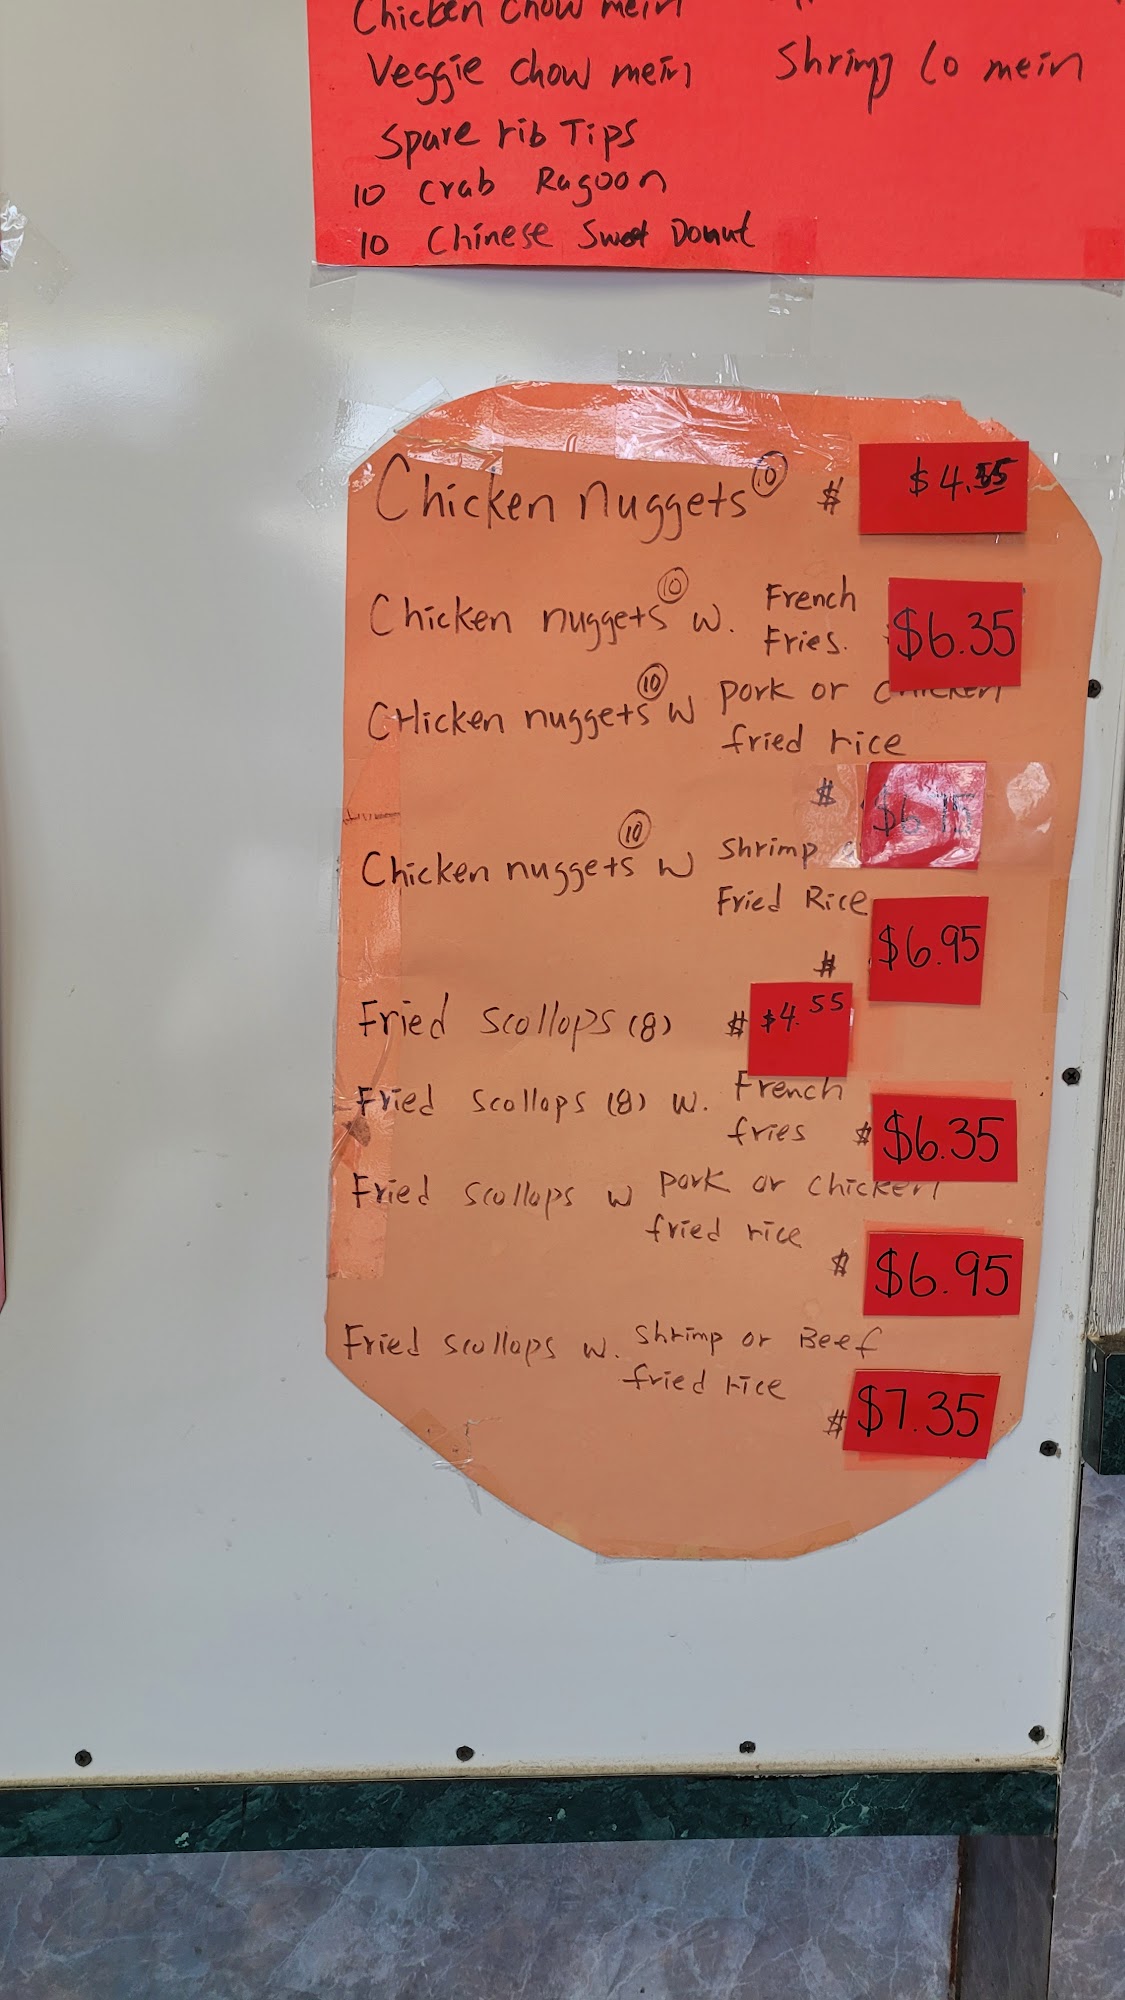 Chicken Chow mein
Veggie Chow mein Shrimp Lo mein
Spare rib Tips
10 Crab Ragoon
10 Chinese Sweet Donut
Chicken nuggets 10 $ $4.55
Chicken nuggets 10 w. French
Fries. $6.35
CHicken nuggets 10 w pork or chicken
fried rice
$ $6.15
Chicken nuggets 10 w shrimp
Fried Rice
# $6.95
Fried scollops (8) # $4.55
Fried scollops (8) w. French
fries $ $6.35
Fried scollops w pork or chicken
fried rice
$ $6.95
Fried scollops w. shrimp or Beef
fried rice
# $7.35